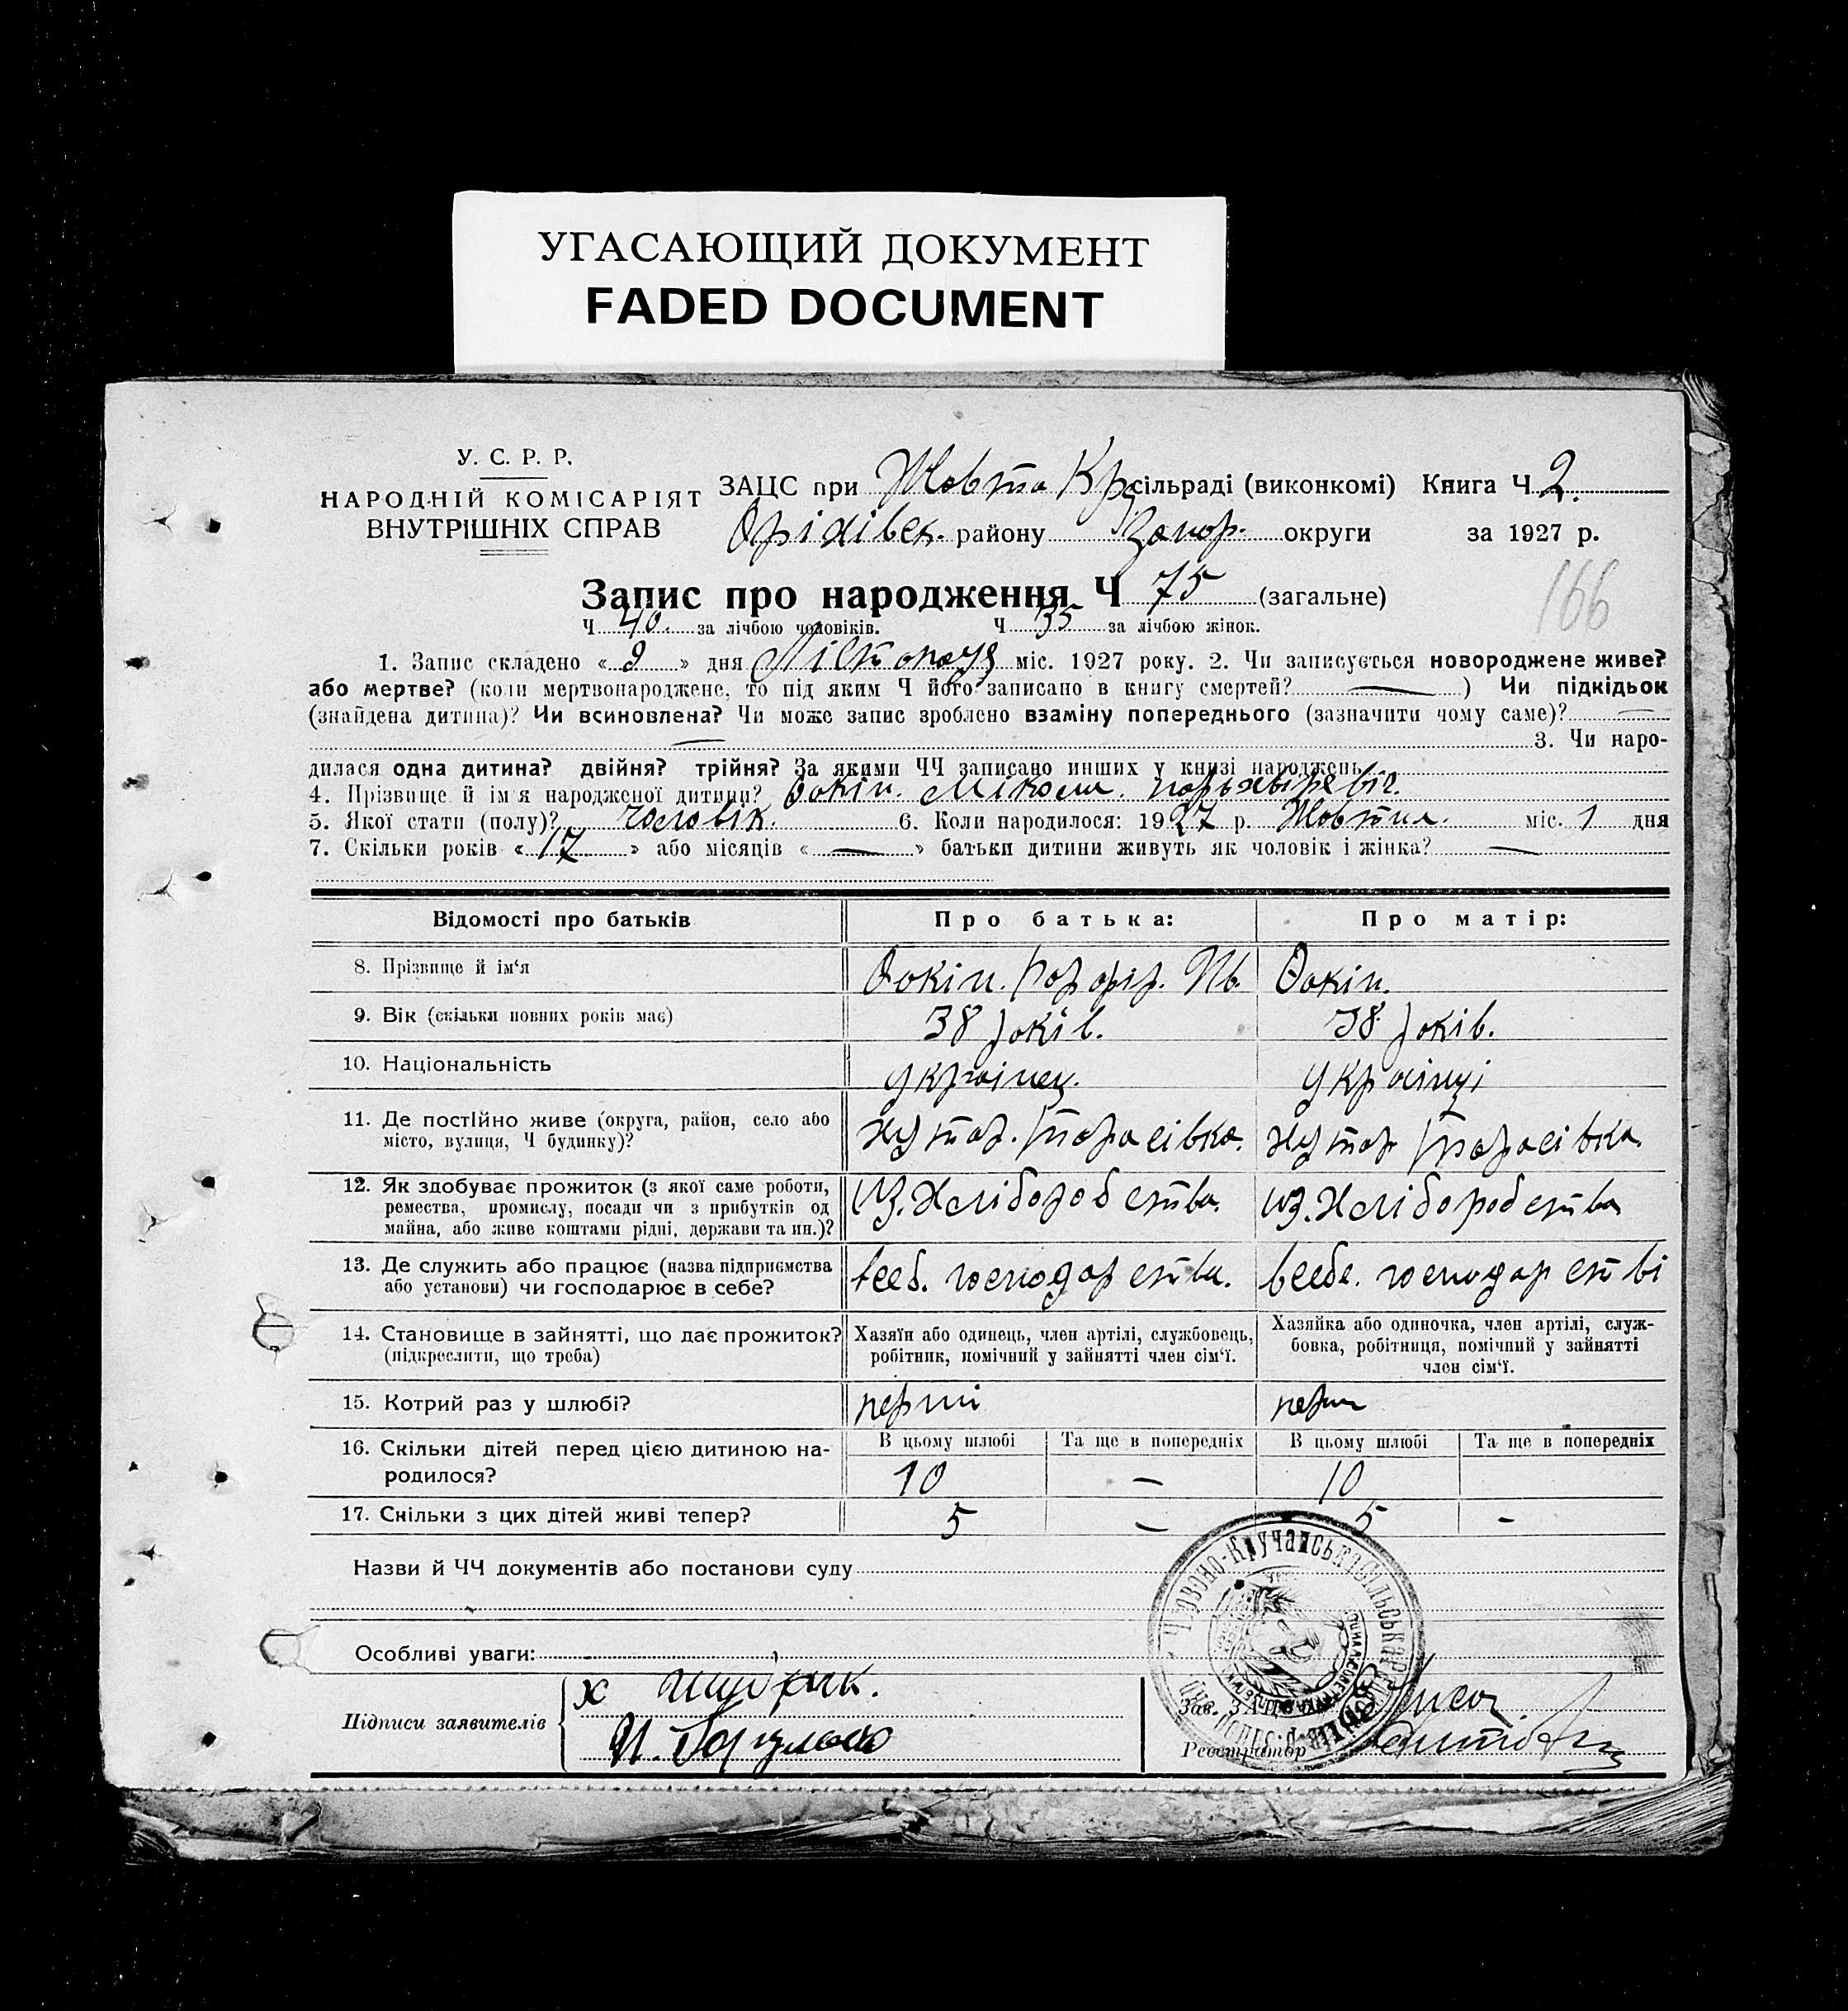 УГАСАЮЩИЙ ДОКУМЕНТ
FADED DOCUMENT
У. С. Р. Р.
НАРОДНІЙ КОМІСАРІЯТ
ВНУТРІШНІХ СПРАВ
ЗАЦС при Жовта Кр. сільраді (виконкомі) Книга Ч. 2.
Оріхівск. району Запор. округи за 1927 р.
Запис про народження Ч 75 (загальне)
166
Ч 40. за лічбою чоловіків. Ч 35 за лічбою жінок.
1. Запис складено « 9 » дня Лістопада міс. 1927 року. 2. Чи записується новороджене живе?
або мертве? (коли мертвонароджене, то під яким Ч його записано в книгу смертей? — ) Чи підкідьок
(знайдена дитина)? Чи всиновлена? Чи може запис зроблено взаміну попереднього (зазначити чому саме)? —
— 3. Чи наро-
дилася одна дитина? двійня? трійня? За якими ЧЧ записано инших у книзі народжень
4. Прізвище й ім'я народженої дитини? Фокін. Мікола.
5. Якої стати (полу)? чоловік. 6. Коли народилося: 1927 р. Жовтня. міс. 1 дня
7. Скільки років « 17 » або місяців « — » батьки дитини живуть як чоловік і жінка? —
Відомості про батьків Про батька: Про матір:
8. Прізвище й ім'я Фокін. Фокін.
9. Вік (скільки повних років має) 38 років. 38 років.
10. Національність українец. українці
11. Де постійно живе (округа, район, село або
місто, вулиця, Ч будинку)? хутор. Тарасівка. хутор Тарасівка.
12. Як здобуває прожиток (з якої саме роботи,
ремества, промислу, посади чи з прибутків од
майна, або живе коштами рідні, держави та ин.)? из. Хліборобства. из. Хліборобства
13. Де служить або працює (назва підприємства
або установи) чи господарює в себе? всеб. господарства. всебе. господарстві
14. Становище в зайнятті, що дає прожиток?
(підкреслити, що треба)
Хазяїн або одинець, член артілі, службовець,
робітник, помічний у зайнятті член сім'ї.
Хазяйка або одиночка, член артілі, служ-
бовка, робітниця, помічний у зайнятті
член сім'ї.
15. Котрий раз у шлюбі? перші перш
16. Скільки дітей перед цією дитиною на-
родилося?
В цьому шлюбі Та ще в попередніх В цьому шлюбі Та ще в попередніх
10 — 10
17. Скільки з цих дітей живі тепер? 5 — 5 -
Назви й ЧЧ документів або постанови суду
Особливі уваги:
Підписи заявителів
х
Зав. ЗАЦС
Реєстратор
Червоно-Кручанська сільська рада